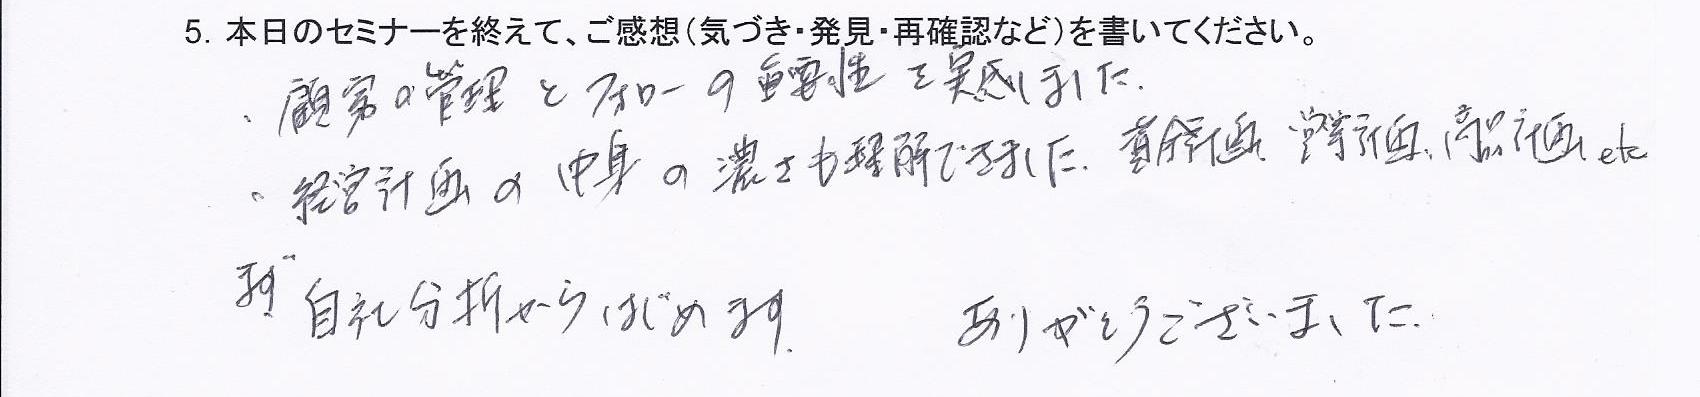 5. 本日のセミナーを終えて、ご感想（気づき・発見・再確認など）を書いてください。
・顧客の管理とフォローの重要性を実感しました.
・経営計画の中身の濃さも理解できました. 資金計画、営業計画、商品計画 etc
まず 自社分析からはじめます. ありがとうございました.